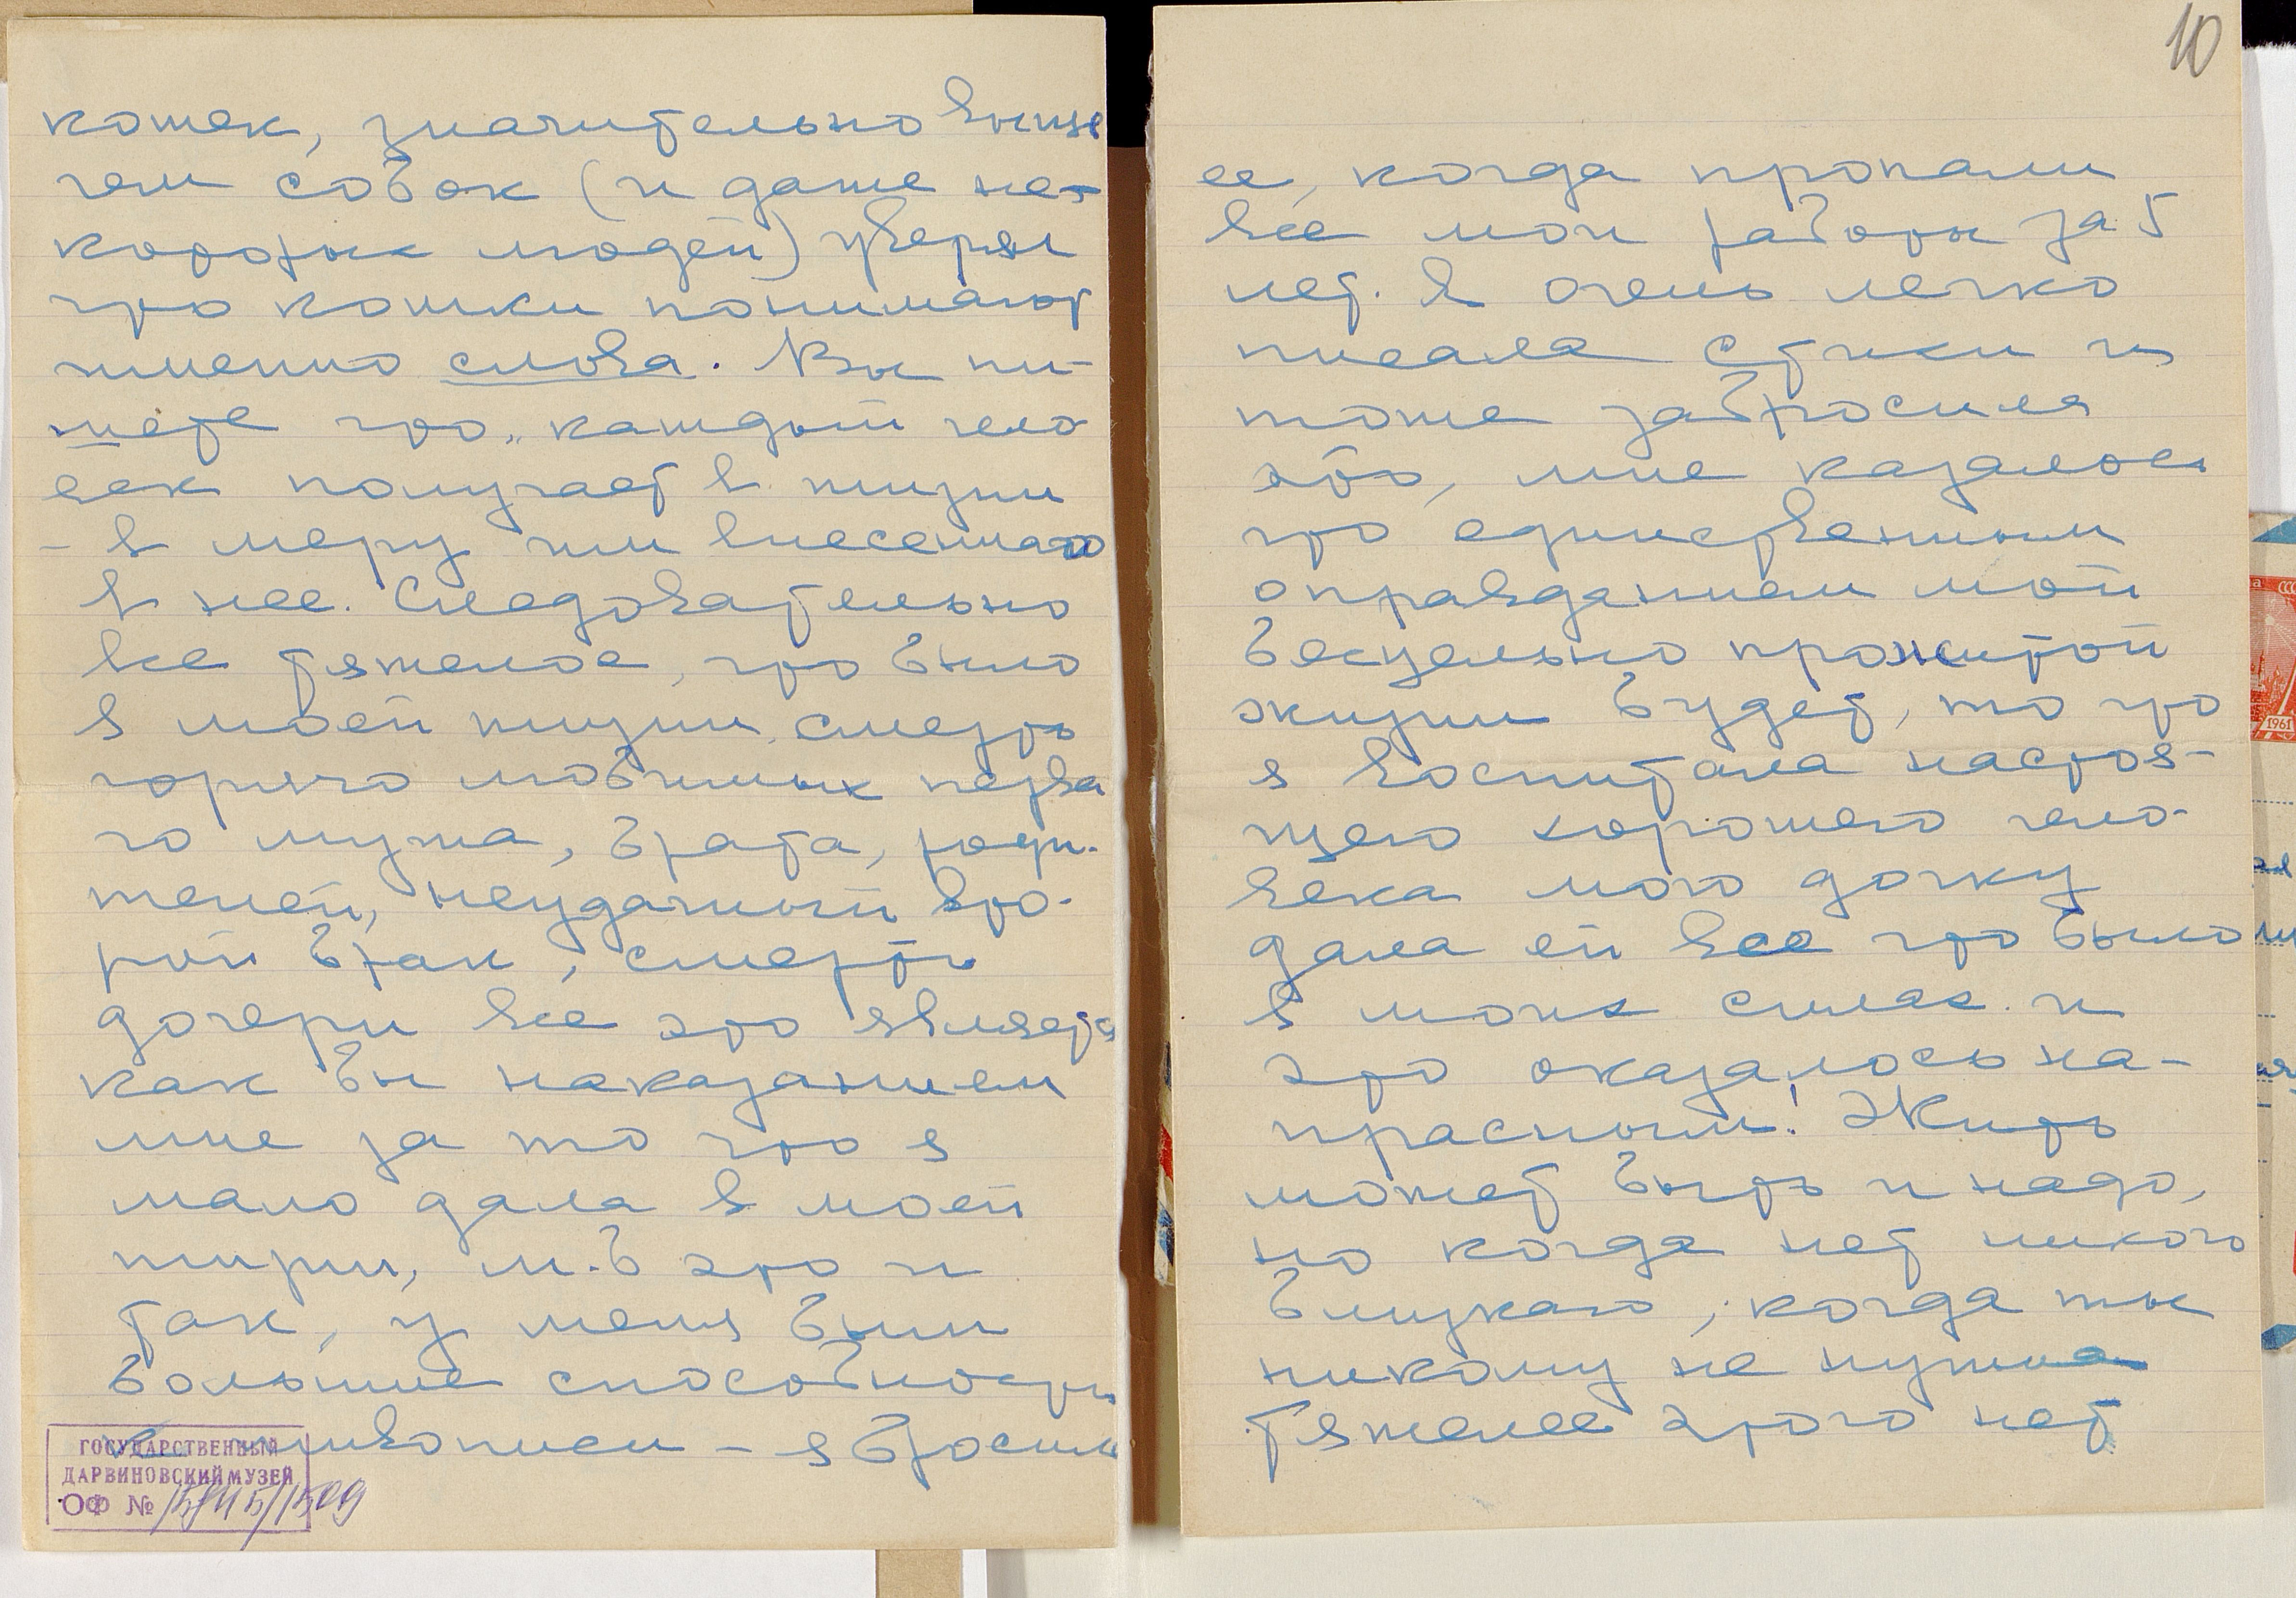 кошек, значительно выше
чем собак (и даже не-
которых людей) уверял
что кошки понимают
именно слова. Вы пи-
шете что „каждый чело
век получает в жизни
- в меру им внесеннаго
в нее. Следовательно
все тяжелое, что было
в моей жизни, смерть
горячо любимых перва
го мужа, брата, роди-
телей, неудачный вто-
рой брак, смерть
дочери все это является
как бы наказанием
мне за то что я
мало дала в моей
жизни, м.б это и
так, у меня были
большие способности
к живописи - я бросила
ГОСУДАРСТВЕННЫЙ
ДАРВИНОВСКИЙ МУЗЕЙ
ОФ №
10
ее, когда пропали
все мои работы за 5
лет. Я очень легко
писала стихи и
тоже забросила
это, мне казалось
что единственным
оправданием мой
бесцельно прожитой
жизни будет, то что
я воспитала настоя-
щего хорошего чело-
века мою дочку
дала ей все что было
в моих силах и
это оказалось на-
прасным! Жить
может быть и надо,
но когда нет никого
близкаго, когда ты
никому не нужна
тяжелее этого нет
1961